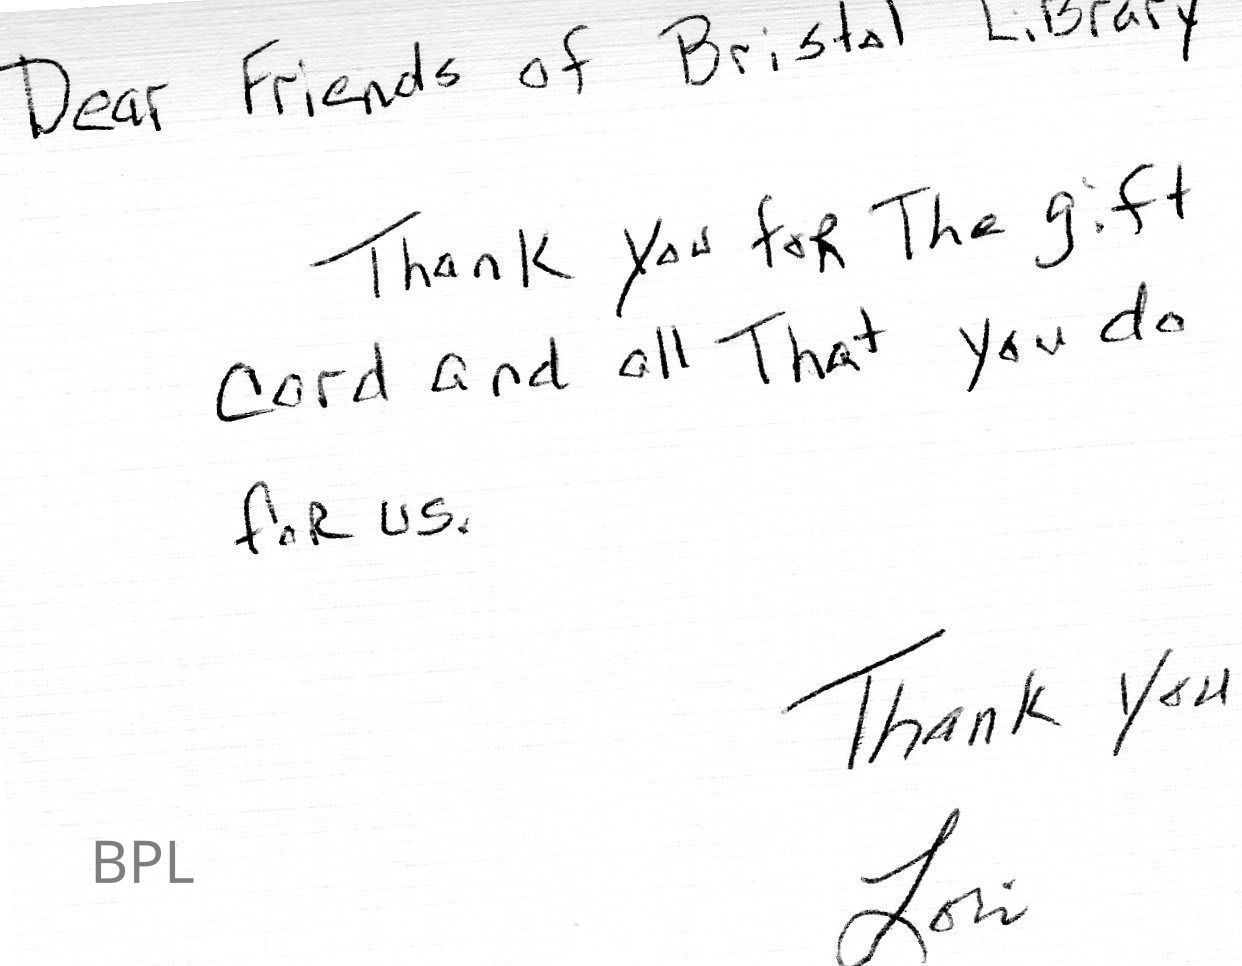 Dear Friends of Bristol LiBrary
Thank you foR The gift
Card and all That you do
foR us.
Thank you
BPL
Lori